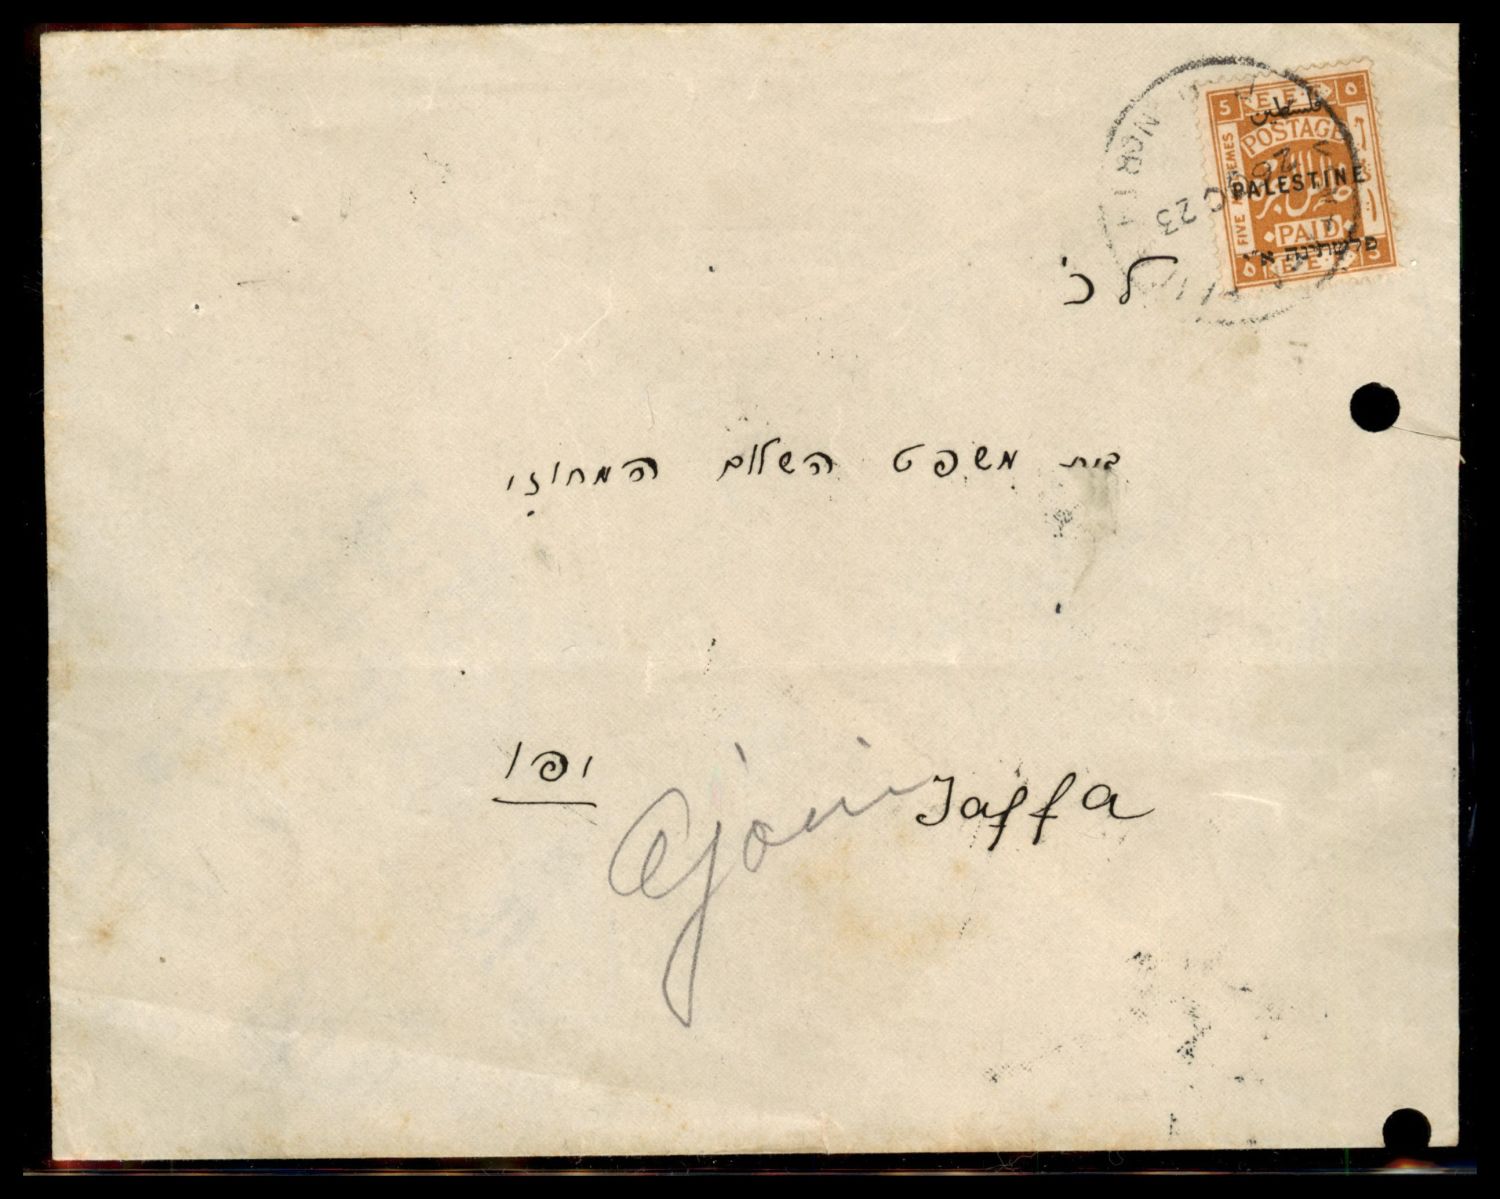 5 E.E.F. ٥
فلسطين
POSTAGE
FIVE MILLIEMES
PALESTINE
PAID
פלשתינה א״י
٥ E.E.F. 5
23
NORTH
לכ'
בית משפט השלום המחוזי
יפו
Jaffa
Ajami